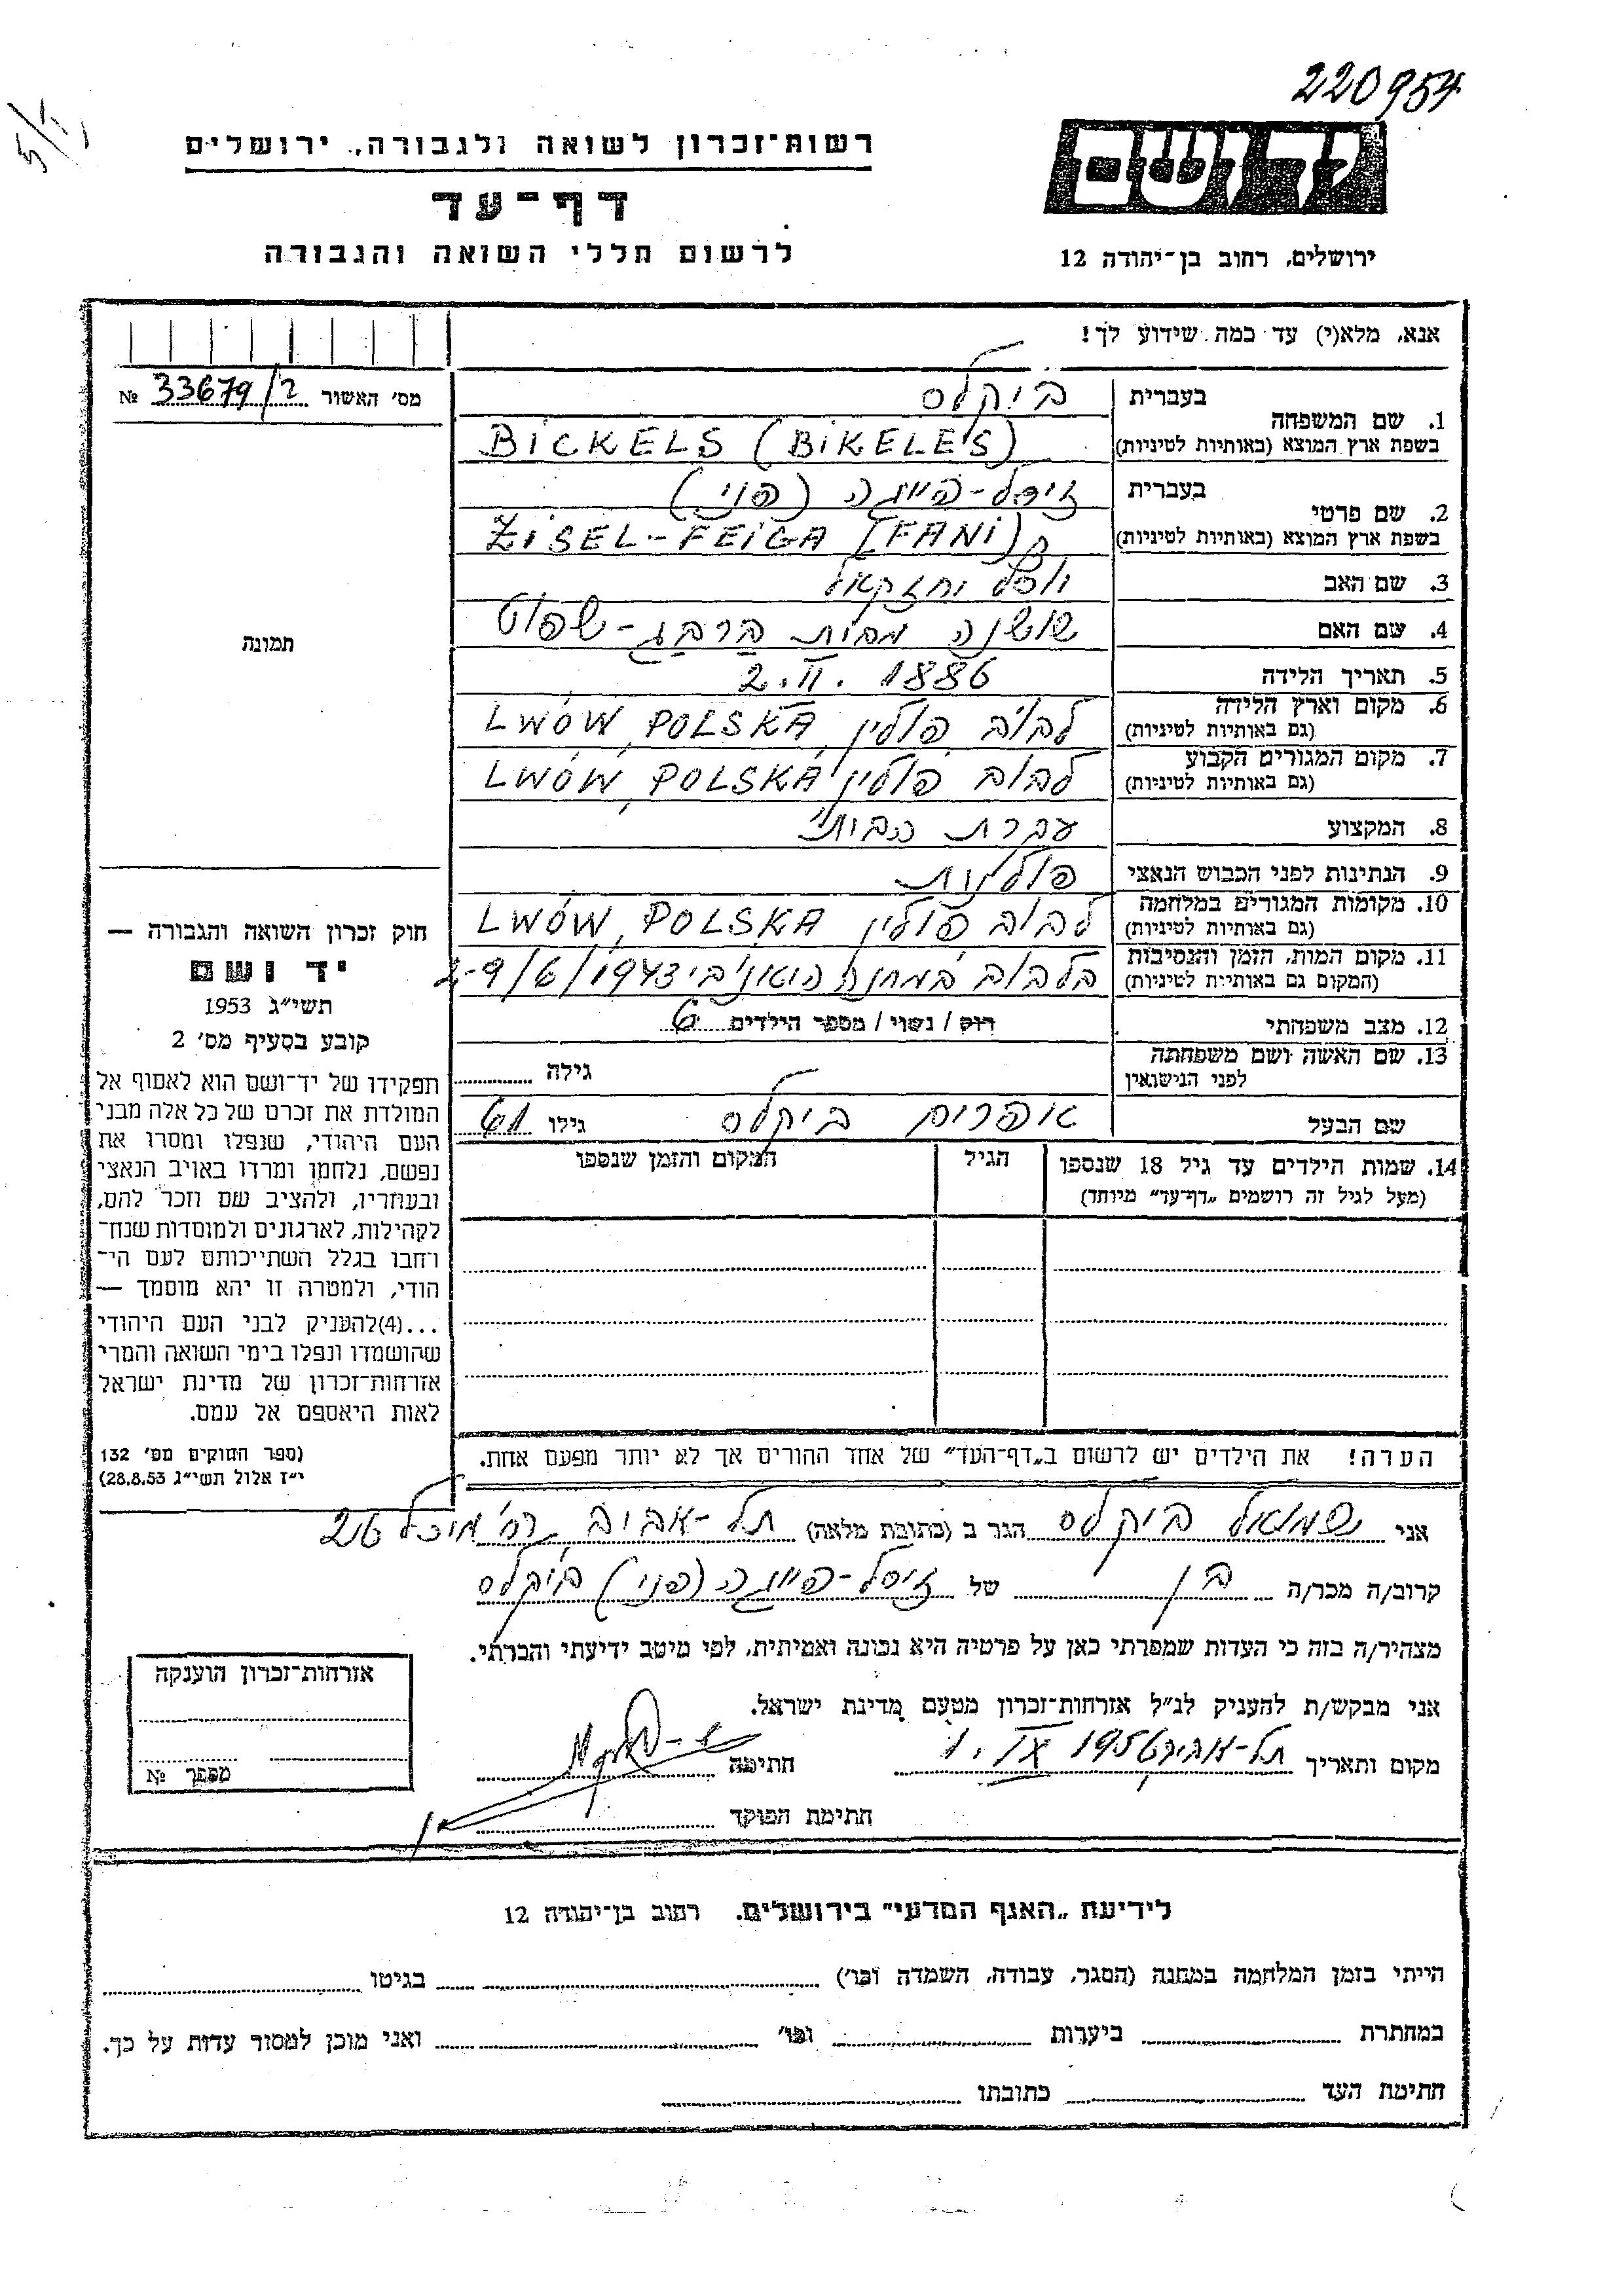 220954
רשות־זכרון לשואה ולגבורה, ירושלים
דף־עד
לרשום חללי השואה והגבורה
ידושם
ירושלים, רחוב בן־יהודה 12
אנא, מלא(י) עד כמה שידוע לך!
מס' האשור № 33679/2
תמונה
1. שם המשפחה
בעברית ביקלס
בשפת ארץ המוצא (באותיות לטיניות) BICKELS (BIKELES)
2. שם פרטי
בעברית זיסל-פייגה (פני)
בשפת ארץ המוצא (באותיות לטיניות) ZISEL-FEIGA (FANI)
3. שם האב
4. שם האם שושנה מבית
5. תאריך הלידה 2. II. 1886
6. מקום וארץ הלידה
(גם באותיות לטיניות) לבוב פולין LWÓW, POLSKA
7. מקום המגורים הקבוע
(גם באותיות לטיניות) לבוב פולין LWÓW, POLSKA
8. המקצוע עקרת הבית
9. הנתינות לפני הכבוש הנאצי פולנית
10. מקומות המגורים במלחמה
(גם באותיות לטיניות) לבוב פולין LWÓW, POLSKA
11. מקום המות, הזמן והנסיבות
(המקום גם באותיות לטיניות) בלבוב במחנה 1943/6/
12. מצב משפחתי רוק / נשוי / מספר הילדים 6
13. שם האשה ושם משפחתה
לפני הנישואין גילה
שם הבעל אפרים ביקלס גילו 61
14. שמות הילדים עד גיל 18 שנספו
(מעל לגיל זה רושמים „דף־עד" מיוחד)
הגיל
המקום והזמן שנספו
חוק זכרון השואה והגבורה —
יד ושם
תשי"ג 1953
קובע בסעיף מס' 2
תפקידו של יד־ושם הוא לאסוף אל
המולדת את זכרם של כל אלה מבני
העם היהודי, שנפלו ומסרו את
נפשם, נלחמו ומרדו באויב הנאצי
ובעוזריו, ולהציב שם וזכר להם,
לקהילות, לארגונים ולמוסדות שנח־
רחבו בגלל השתייכותם לעם הי־
הודי, ולמטרה זו יהא מוסמך —
...(4)להעניק לבני העם היהודי
שהושמדו ונפלו בימי השואה והמרי
אזרחות־זכרון של מדינת ישראל
לאות היאספם אל עמם.
(ספר החוקים מס' 132
י"ז אלול תשי"ג 28.8.53)
הערה! את הילדים יש לרשום ב„דף־העד" של אחד ההורים אך לא יותר מפעם אחת.
אני שמואל ביקלס הגר ב (כתובת מלאה) תל-אביב רח' מיכל 26
קרוב/ה מכר/ה בן של זיסל-פייגה (פני) ביקלס
מצהיר/ה בזה כי העדות שמסרתי כאן על פרטיה היא נכונה ואמיתית, לפי מיטב ידיעתי והכרתי.
אני מבקש/ת להעניק לנ"ל אזרחות־זכרון מטעם מדינת ישראל.
מקום ותאריך תל-אביב 1956 .IX .1 חתימה
חתימת הפוקד
אזרחות־זכרון הוענקה
מספר №
לידיעת „האגף המדעי" בירושלים, רחוב בן־יהודה 12
הייתי בזמן המלחמה במחנה (הסגר, עבודה, השמדה וכו') בגיטו
במחתרת ביערות וכו' ואני מוכן למסור עדות על כך.
חתימת העד כתובתו